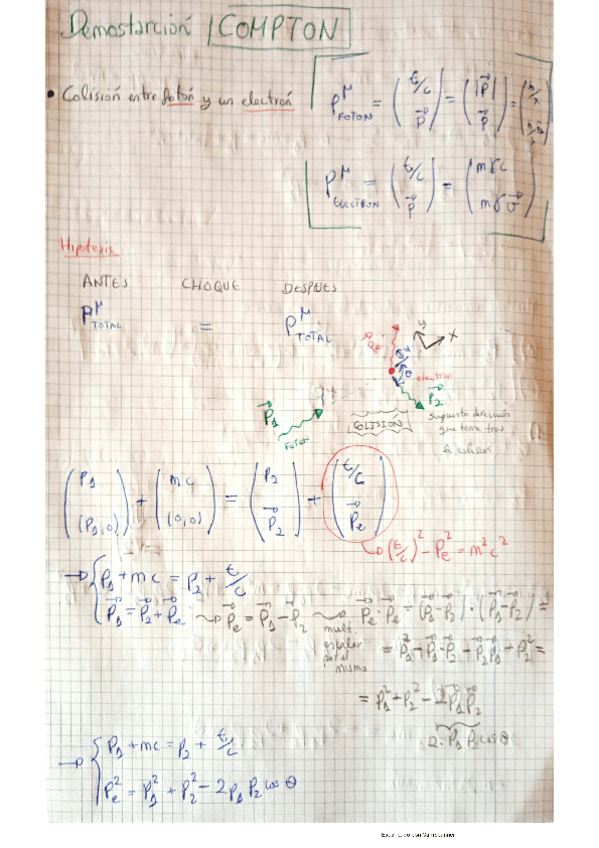 Demostarción / COMPTON
• Colisión entre fotón y un electrón
P^μ_FOTON = (E/c, \vec{p}) = (|\vec{p}|, \vec{p}) =
P^μ_ELECTRON = (E/c, \vec{p}) = (mγc, mγ\vec{v})
Hipotesis
ANTES CHOQUE DESPUES
P^μ_TOTAL = P^μ_TOTAL
y x
θ
electron
\vec{P}_1 \vec{P}_2
FOTON
COLISIÓN
Supuesta dirección
que toma tras
la colision
(P_1, (P_1,0)) + (mc, (0,0)) = (P_2, \vec{P}_2) + (E/c, \vec{P}_e)
(E/c)^2 - P_e^2 = m^2c^2
→ { P_1 + mc = P_2 + E/c
\vec{P}_1 = \vec{P}_2 + \vec{P}_e → \vec{P}_e = \vec{P}_1 - \vec{P}_2 → \vec{P}_e · \vec{P}_e = (\vec{P}_1 - \vec{P}_2) · (\vec{P}_1 - \vec{P}_2) =
mult.
escalar
por el
mismo
= P_1^2 - \vec{P}_1 · \vec{P}_2 - \vec{P}_2 \vec{P}_1 + P_2^2 =
= P_1^2 + P_2^2 - 2\vec{P}_1\vec{P}_2
2 · P_1 P_2 cos θ
→ { P_1 + mc = P_2 + E/c
P_e^2 = P_1^2 + P_2^2 - 2P_1P_2 cos θ